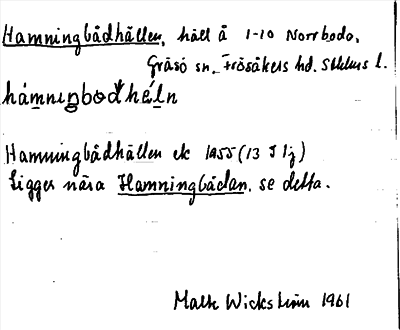 Hamningbådhällen, häll å 1-10 Norrboda,
Gräsö sn. Frösåkers hd. Sthlms l.
hámnıŋbodhéln
Hamningbådhällen ek 1955 (13 I 1j)
Ligger nära Hamningbådan, se detta.
Wickström 1961